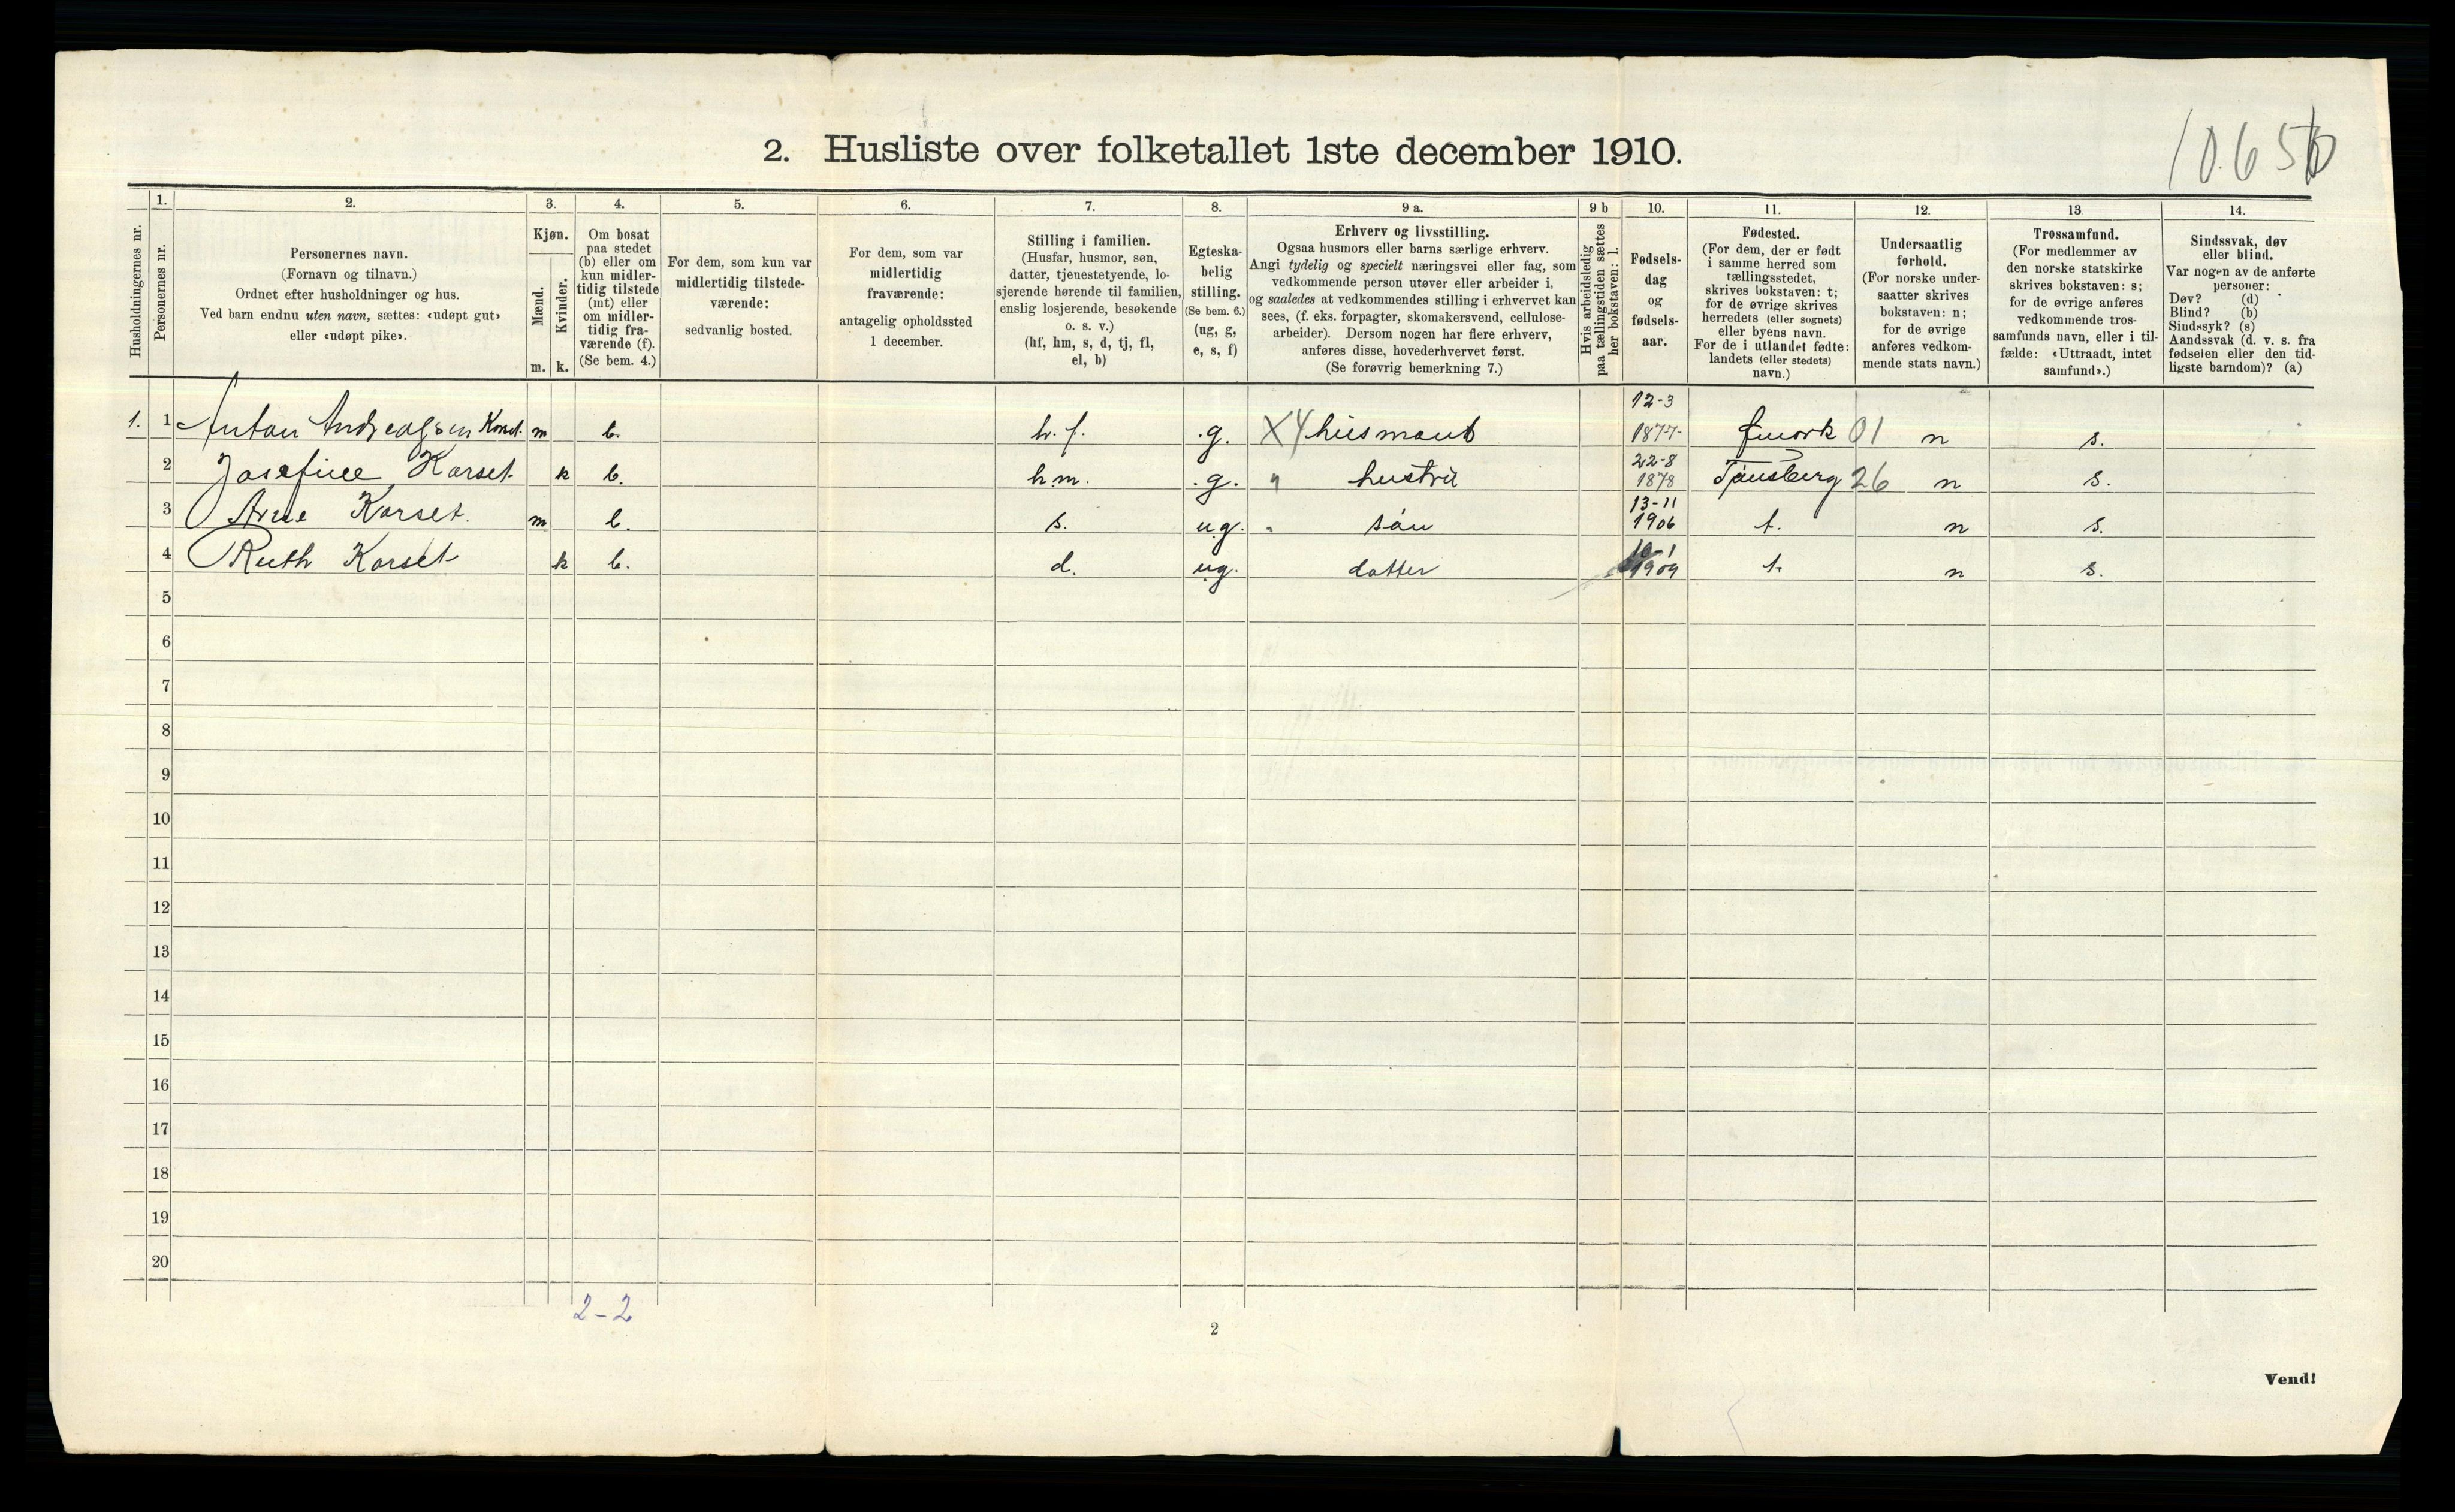 10.650
2. Husliste over folketallet 1ste december 1910.
Husholdningernes nr.
1. Personernes nr.
2. Personernes navn.
(Fornavn og tilnavn.)
Ordnet efter husholdninger og hus.
Ved barn endnu uten navn, sættes: «udøpt gut»
eller «udøpt pike».
3. Kjøn.
Mænd. m.
Kvinder. k.
4. Om bosat
paa stedet
(b) eller om
kun midler-
tidig tilstede
(mt) eller
om midler-
tidig fra-
værende (f).
(Se bem. 4.)
5. For dem, som kun var
midlertidig tilstede-
værende:
sedvanlig bosted.
6. For dem, som var
midlertidig
fraværende:
antagelig opholdssted
1 december.
7. Stilling i familien.
(Husfar, husmor, søn,
datter, tjenestetyende, lo-
sjerende hørende til familien,
enslig losjerende, besøkende
o. s. v.)
(hf, hm, s, d, tj, fl,
el, b)
8. Egteska-
belig
stilling.
(Se bem. 6.)
(ug, g,
e, s, f)
9 a. Erhverv og livsstilling.
Ogsaa husmors eller barns særlige erhverv.
Angi tydelig og specielt næringsvei eller fag, som
vedkommende person utøver eller arbeider i,
og saaledes at vedkommendes stilling i erhvervet kan
sees, (f. eks. forpagter, skomakersvend, cellulose-
arbeider). Dersom nogen har flere erhverv,
anføres disse, hovederhvervet først.
(Se forøvrig bemerkning 7.)
9 b Hvis arbeidsledig
paa tællingstiden sættes
her bokstaven: l.
10. Fødsels-
dag
og
fødsels-
aar.
11. Fødested.
(For dem, der er født
i samme herred som
tællingsstedet,
skrives bokstaven: t;
for de øvrige skrives
herredets (eller sognets)
eller byens navn.
For de i utlandet fødte:
landets (eller stedets)
navn.)
12. Undersaatlig
forhold.
(For norske under-
saatter skrives
bokstaven: n;
for de øvrige
anføres vedkom-
mende stats navn.)
13 Trossamfund.
(For medlemmer av
den norske statskirke
skrives bokstaven: s;
for de øvrige anføres
vedkommende tros-
samfunds navn, eller i til-
fælde: «Uttraadt, intet
samfund».)
14. Sindssvak, døv
eller blind.
Var nogen av de anførte
personer:
Døv? (d)
Blind? (b)
Sindssyk? (s)
Aandssvak (d. v. s. fra
fødselen eller den tid-
ligste barndom)? (a)
1. 1 Anton Andreassen Korset m b. h.f. g. X4 husmand 12-3 1877 01 n s.
2 Josefine Korset k b. h.m. g. " hustru 22-8 1878 Tønsberg 26 n s.
3 Arne Korset. m b. s. ug. " søn 13-11 1906 t. n s.
4 Ruth Korset k b. d. ug. datter 10-1 1909 t. n s.
5
6
7
8
9
10
11
12
13
14
15
16
17
18
19
20
2-2
2
Vend!